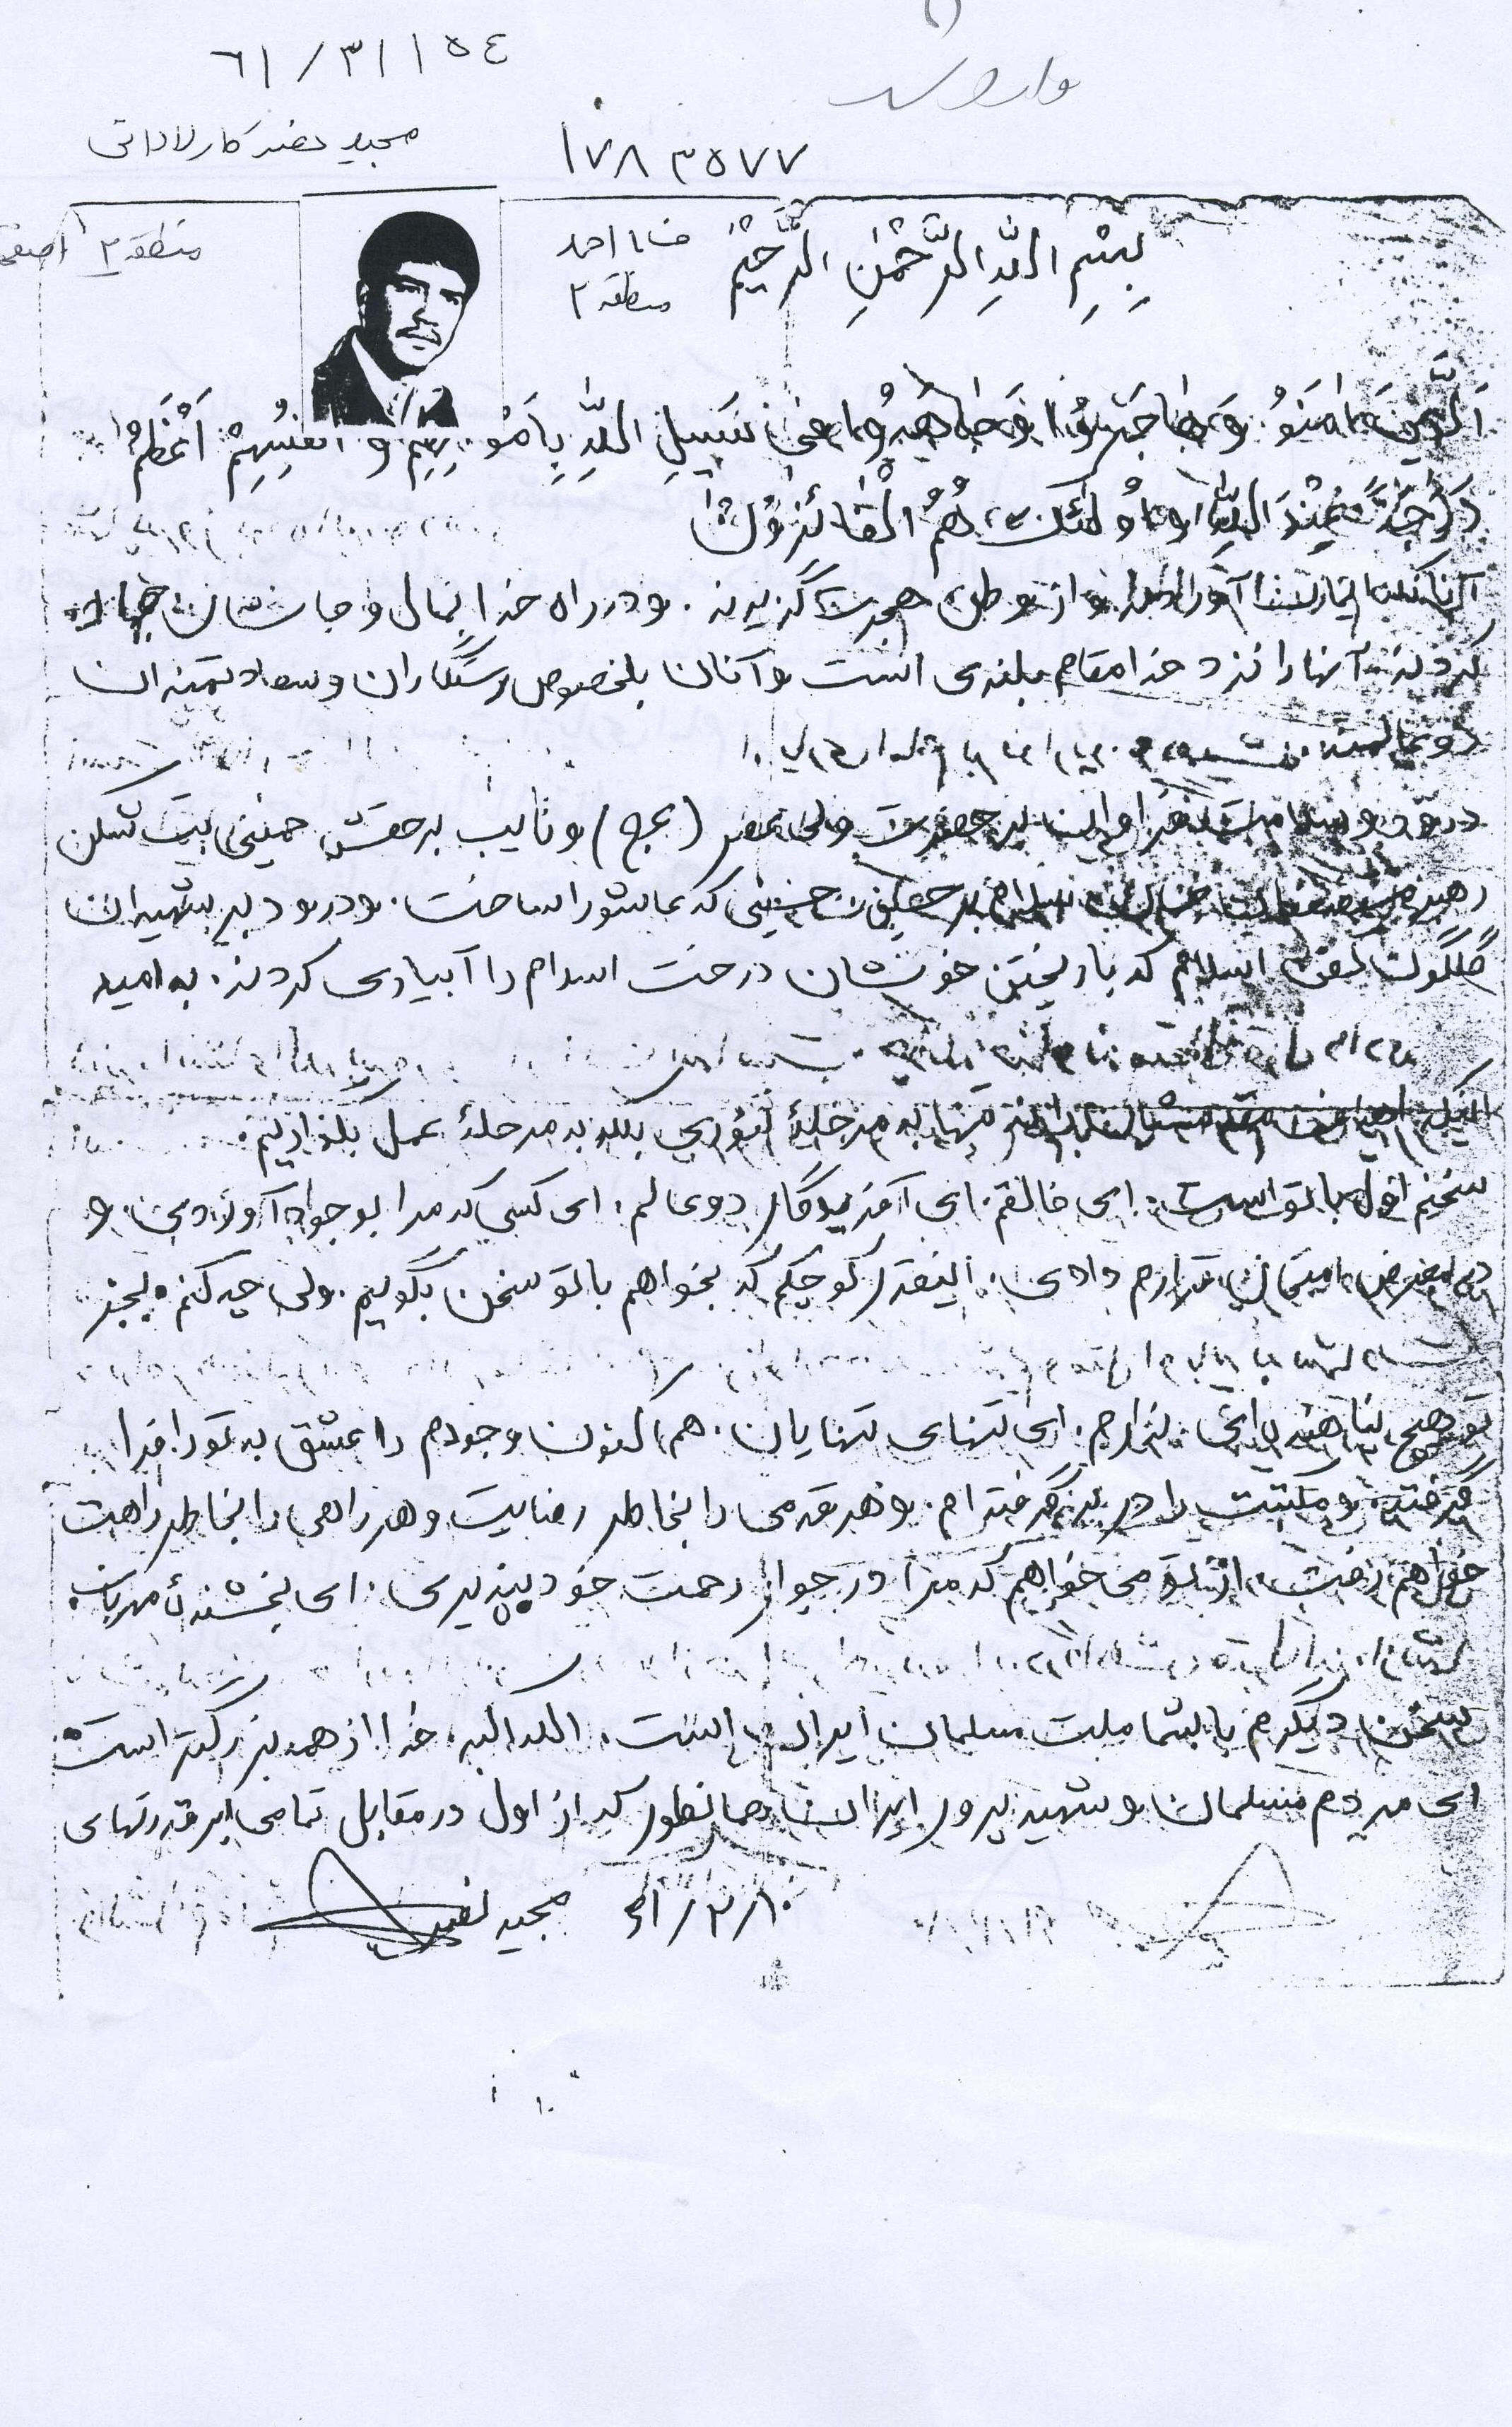 ٦١/٣١١٥٤
وارد شد
مجید صفدر کارلادانی
١٧٨٣٥٧٧
منطقه ٢
منطقه ٢
بِسْمِ اللَّهِ الرَّحْمٰنِ الرَّحیْمْ
اَلَّذینَ امَنوُ وَ هاجَروُا وَ جاهَدوُا فی سَبیلِ اللَّهِ بِاَمْوالِهِمْ وَ اَنْفُسِهِمْ اَعْظَمُ
دَرَجَةً عِنْدَ اللَّهِ وَ اوُلئکَ هُمُ الْفائزوُنْ
آنانکه ایمان آوردند و از وطن هجرت گزیدند. و در راه خدا بمال و جانشان جهاد
کردند آنها را نزد خدا مقام بلندی است و آنان بلخصوص رستگاران و سعادتمندان
دو عالمند
درود و سلامت فراوان بر حضرت ولی عصر (عج) و نائب بر حقش خمینی بت شکن
رهبر مستضعفان جهان سلام بر حسینی که عاشورا ساخت. و درود بر شهیدان
گلگون کفن اسلام که با ریختن خونشان درخت اسلام را آبیاری کردند. به امید
اینکه تنها به مرحلهٔ تئوری بلکه به مرحلهٔ عمل بگذاریم.
سخنم اول با تو است. ای خالقم. ای آفریدگار دو عالم. ای کسی که مرا بوجود آوردی. و
در معرض امتحان قرارم دادی. اینقدر کوچکم که بخواهم با تو سخن بگویم. ولی چه کنم بجز
تو هیچ پناهنده ای ندارم. ای تنهای تنهایان. هم اکنون وجودم را عشق به تو را فرا
گرفته و مکتبت را در بر گرفته ام. و هر قدمی را بخاطر رضایت و هر راهی را بخاطر راهت
خواهم رفت. از تو می خواهم که مرا در جوار رحمت خود بپذیری. ای بخشندهٔ مهربان
سخن دیگرم با شما ملت مسلمان ایران است. الله اکبر. خدا از همه بزرگتر است
ای مردم مسلمان و شهید پرور ایران همانطور که از اول در مقابل تمامی ابرقدرتهای
٦١/٢/١٠ مجید صفدر